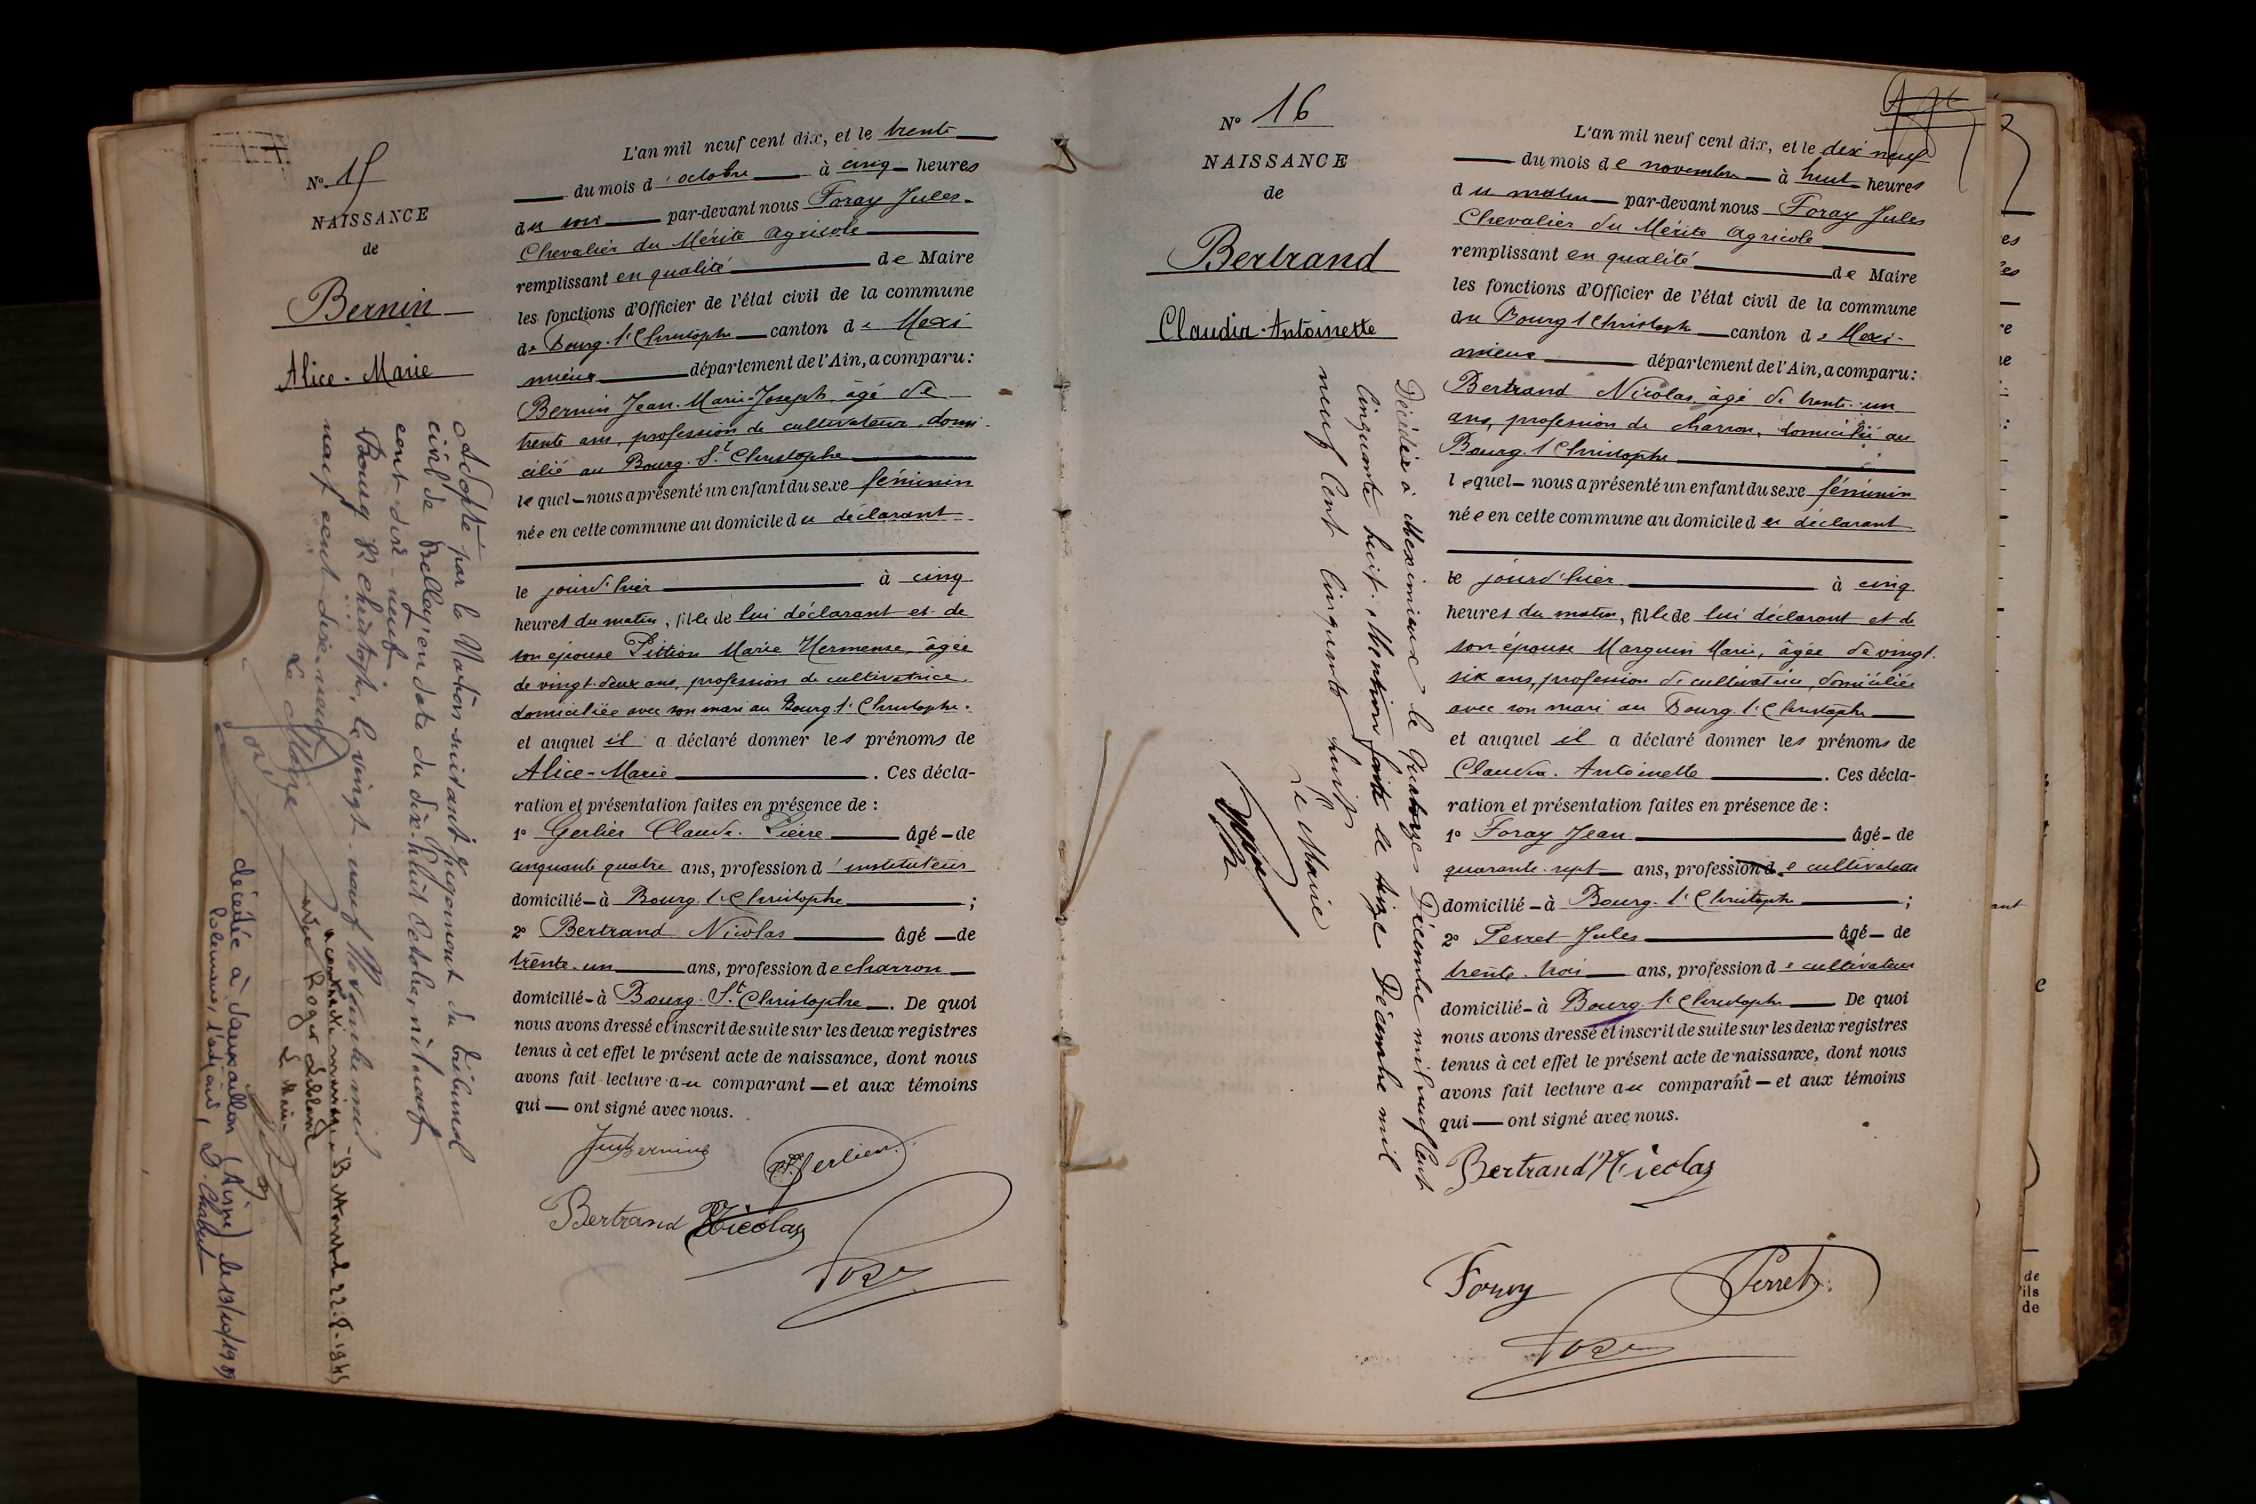 N° 15
NAISSANCE
de
Bernin
Alice-Marie
L'an mil neuf cent dix, et le trente
du mois d'octobre à cinq heures
du soir par-devant nous Foray Jules
Chevalier du Mérite Agricole
remplissant en qualité de Maire
les fonctions d'Officier de l'état civil de la commune
de Bourg-St Christophe canton de Mexi
mieux département de l'Ain, a comparu:
Bernin Jean-Marie-Joseph, âgé de
trente ans, profession de cultivateur, domi-
cilié au Bourg-St Christophe
lequel nous a présenté un enfant du sexe féminin
née en cette commune au domicile du déclarant
le jourd'hier à cinq
heures du matin, fille de lui déclarant et de
son épouse Pittion Marie Hermense, âgée
de vingt-deux ans, profession de cultivatrice,
domiciliée avec son mari au Bourg St Christophe.
et auquel il a déclaré donner les prénoms de
Alice-Marie. Ces décla-
ration et présentation faites en présence de :
1° Gerlier Claude-Pierre âgé de
cinquante quatre ans, profession d'instituteur
domicilié à Bourg-St Christophe ;
2° Bertrand Nicolas âgé de
trente-un ans, profession de charron
domicilié à Bourg-St Christophe. De quoi
nous avons dressé et inscrit de suite sur les deux registres
tenus à cet effet le présent acte de naissance, dont nous
avons fait lecture au comparant et aux témoins
qui ont signé avec nous.
Bernin
Gerlier
Bertrand Nicolas
Adoptée par la Nation suivant jugement du tribunal
civil de Belley en date du dix-huit Octobre mil neuf
cent dix-neuf
Bourg St Christophe, le vingt-neuf Novembre mil
neuf cent dix-neuf
Le Maire
a contracté mariage à
avec Roger
Le Maire
décédée à Vauxaillon (Aisne) le 13/10/19
N° 16
NAISSANCE
de
Bertrand
Claudia-Antoinette
L'an mil neuf cent dix, et le dix neuf
du mois de novembre à huit heures
du matin par-devant nous Foray Jules
Chevalier du Mérite Agricole
remplissant en qualité de Maire
les fonctions d'Officier de l'état civil de la commune
du Bourg St Christophe canton de Mexi-
mieux département de l'Ain, a comparu:
Bertrand Nicolas, âgé de trente-un
ans, profession de charron, domicilié au
Bourg St Christophe
lequel nous a présenté un enfant du sexe féminin
née en cette commune au domicile du déclarant
le jourd'hier à cinq
heures du matin, fille de lui déclarant et de
son épouse Marguin Marie, âgée de vingt-
six ans, profession de cultivatrice, domiciliée
avec son mari au Bourg St Christophe
et auquel il a déclaré donner les prénoms de
Claudia-Antoinette. Ces décla-
ration et présentation faites en présence de :
1° Foray Jean âgé de
quarante-sept ans, profession de cultivateur
domicilié à Bourg-St Christophe ;
2° Perret Jules âgé de
trente-trois ans, profession de cultivateur
domicilié à Bourg St Christophe De quoi
nous avons dressé et inscrit de suite sur les deux registres
tenus à cet effet le présent acte de naissance, dont nous
avons fait lecture au comparant et aux témoins
qui ont signé avec nous.
Bertrand Nicolas
Foray
Perret
Décédée à Meximieux le Quatorze Décembre mil neuf Cent
Cinquante huit. Mention faite le seize Décembre mil
neuf Cent Cinquante huit
Le Maire